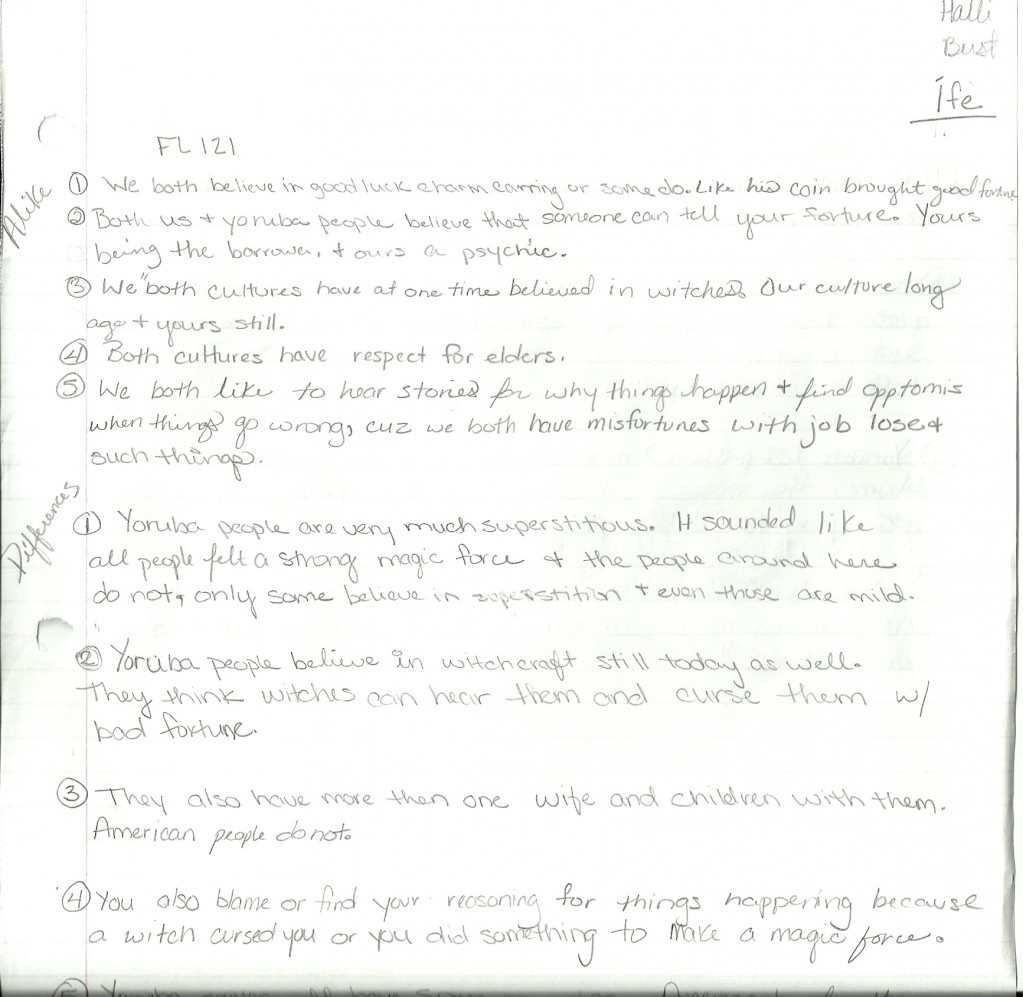 Halli
Bust
Ife
FL 121
Alike
① We both believe in good luck charm carring or some do. Like his coin brought good fortune
② Both us + yoruba people believe that someone can tell your forture. Yours
being the borrower, + ours a psychic.
③ We "both cultures have at one time believed in witches. Our culture long
ago + yours still.
④ Both cultures have respect for elders.
⑤ We both like to hear stories for why things happen + find opptomis
when things go wrong, cuz we both have misfortunes with job lose +
such things.
Differences
① Yoruba people are very much superstitious. It sounded like
all people felt a strong magic force + the people around here
do not, only some believe in superstition + even those are mild.
② Yoruba people believe in witchcraft still today as well.
They think witches can hear them and curse them w/
bad fortune.
③ They also have more then one wife and children with them.
American people do not.
④ You also blame or find your reasoning for things happening because
a witch cursed you or you did something to make a magic force.
⑤ Yoruba